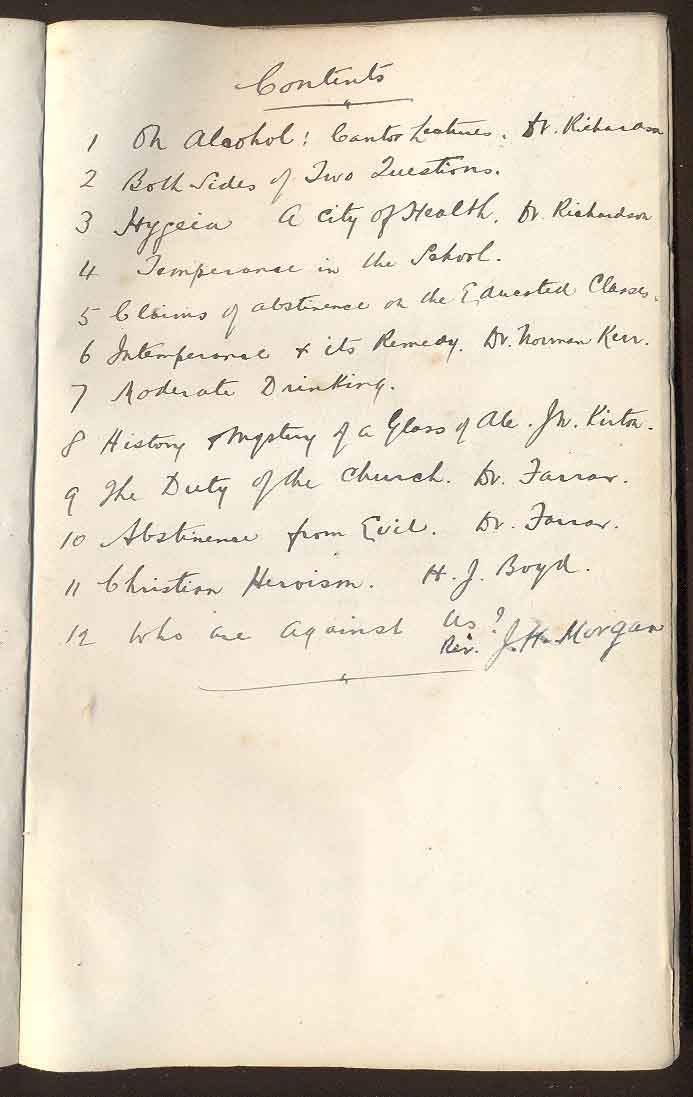 Contents
1 On Alcohol: Cantor Lectures. Dr. Richardson
2 Both Sides of Two Questions.
3 Hygeia A City of Health. Dr. Richardson
4 Temperance in the School.
5 Claims of abstinence on the Educated Classes.
6 Intemperance & its Remedy. Dr. Norman Kerr.
7 Moderate Drinking.
8 History & Mystery of a Glass of Ale. J.W. Kirton.
9 The Duty of the Church. Dr. Farrar.
10 Abstinence from Evil. Dr. Farrar.
11 Christian Heroism. H. J. Boyd.
12 Who are against us?
Rev. J. Hn. Morgan